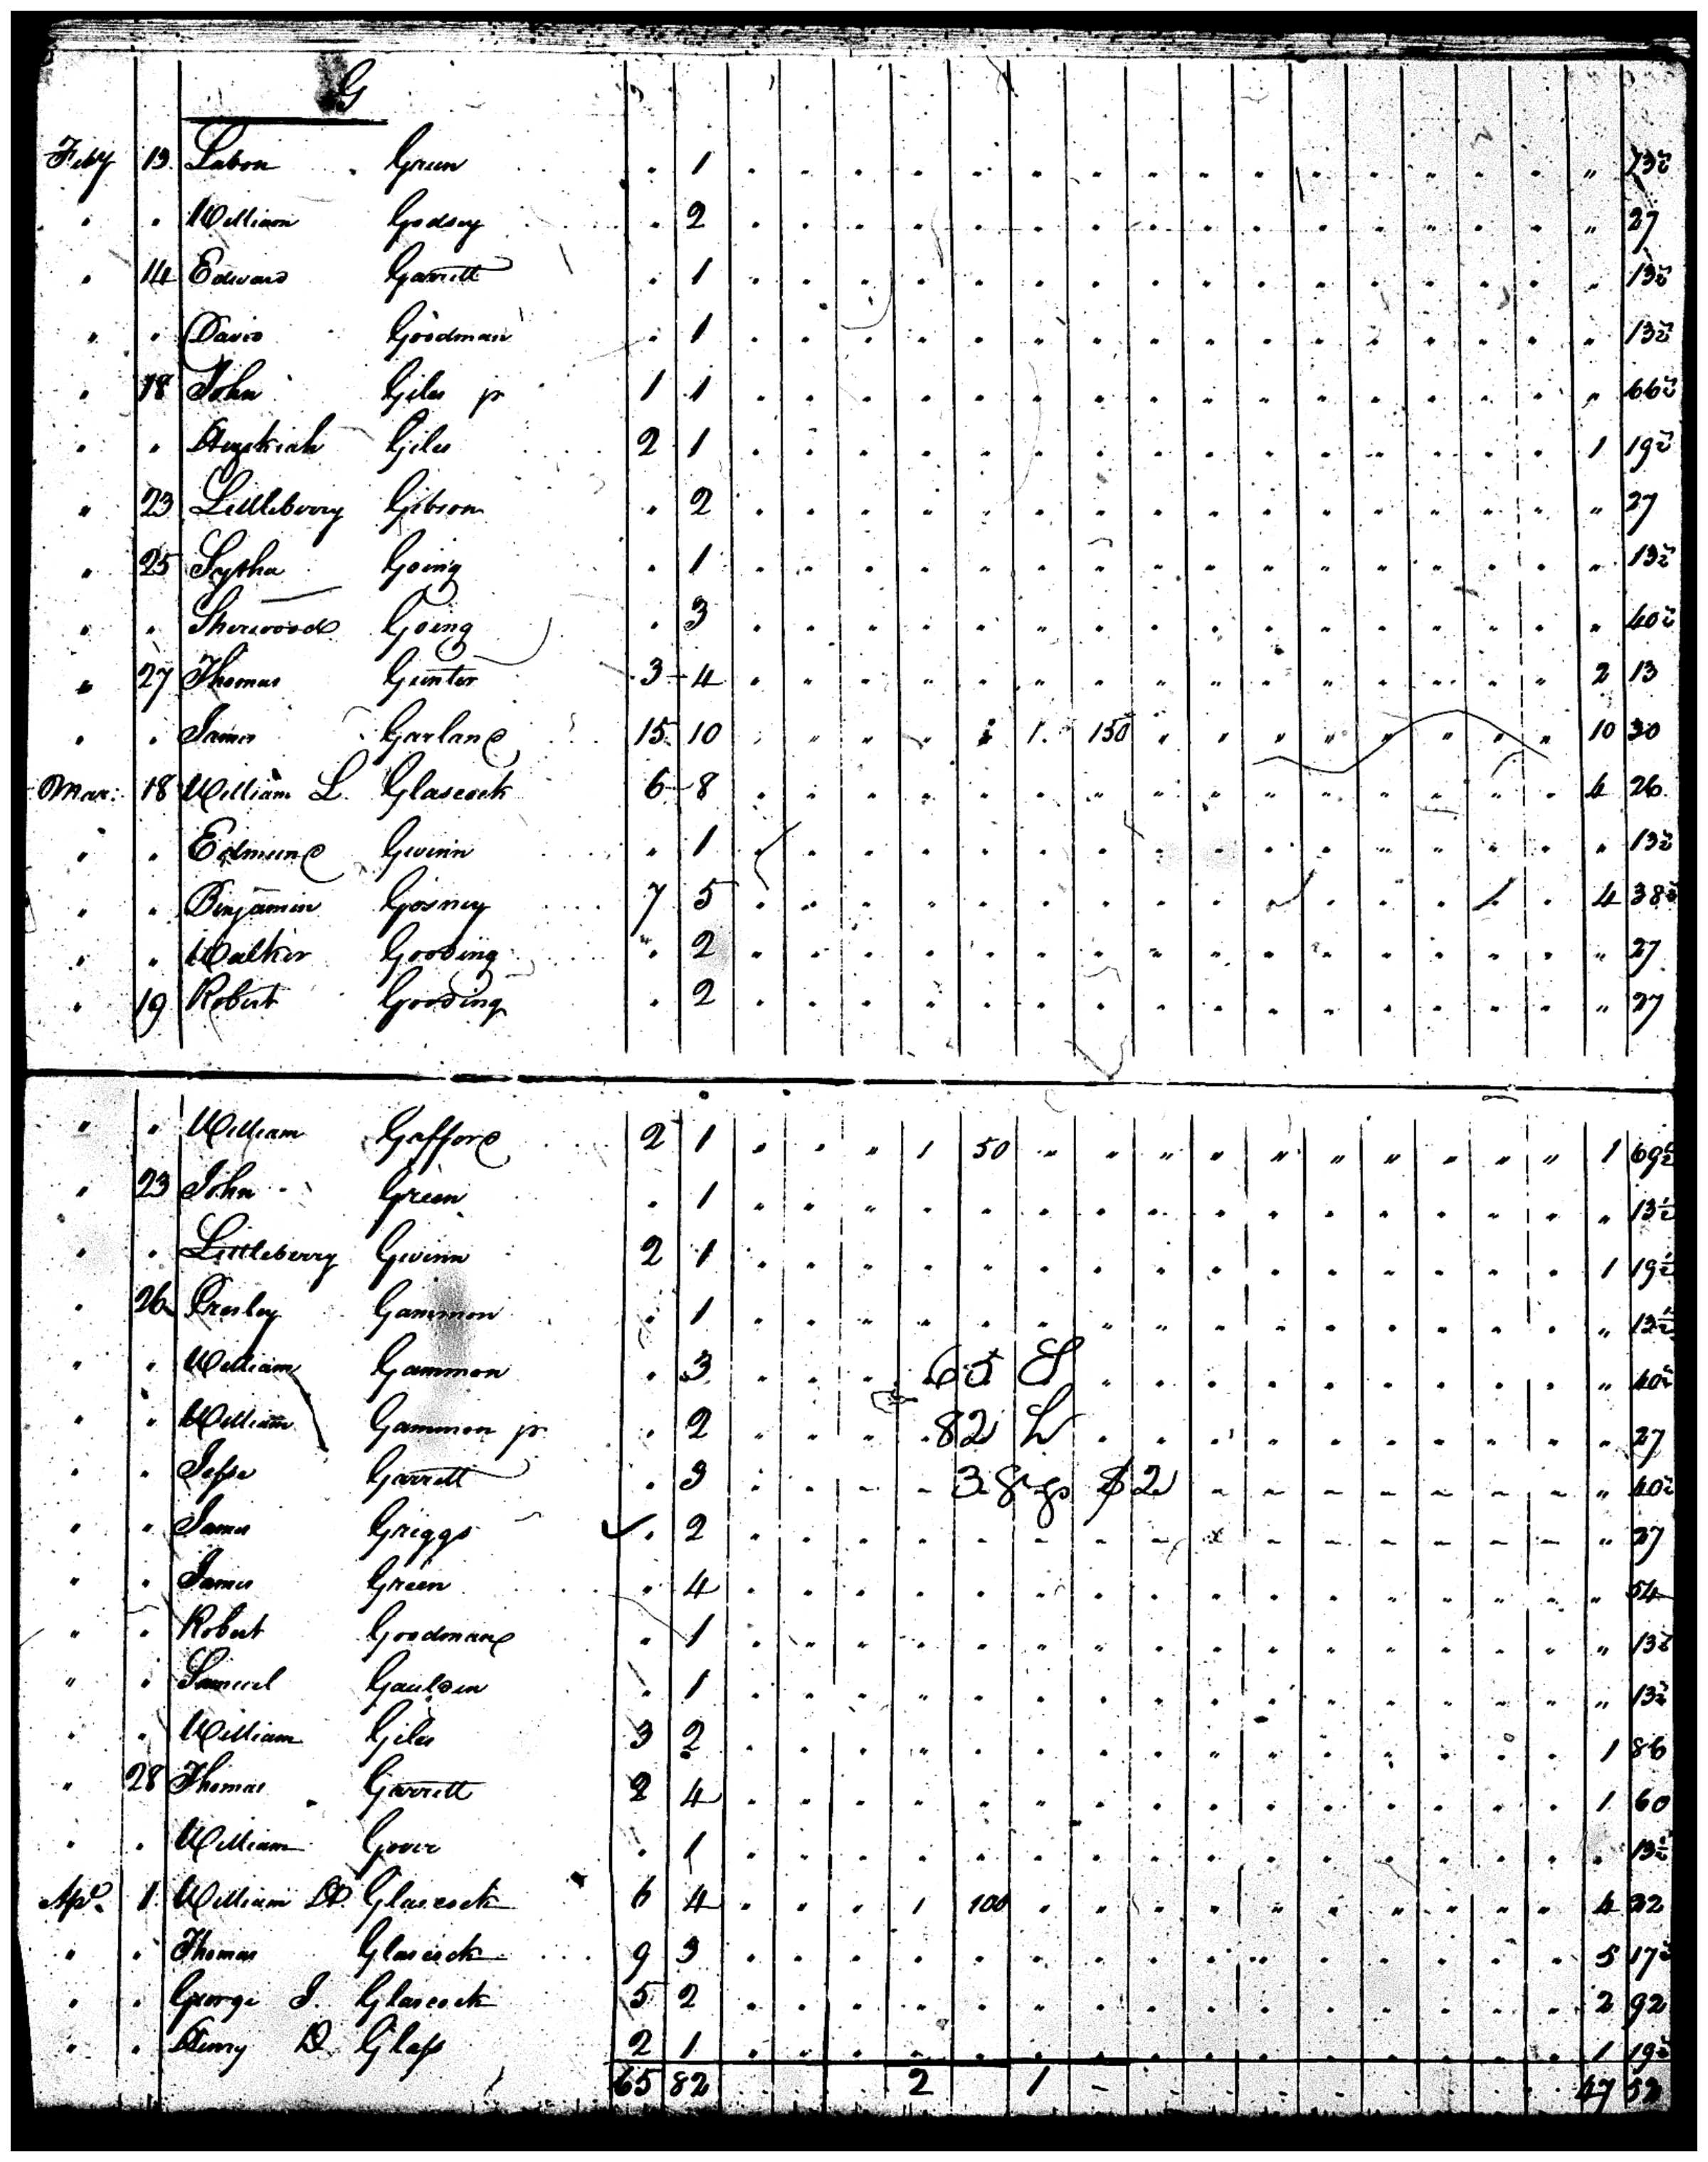 G
Feby 13 Labon Green . 1 . . . . . . . . . . . . . . . " 13½
" " William Godsey . 2 . . . . . . . . . . . . . . . " 27
" 14 Edward Garrett . 1 . . . . . . . . . . . . . . . " 13½
" " David Goodman . 1 . . . . . . . . . . . . . . . " 13½
" 18 John Giles jr 1 1 . . . . . . . . . . . . . . . " 66½
" " Hezekiah Giles 2 1 . . . . . . . . . . . . . . . 1 19½
" 23 Littleberry Gibson . 2 . . . . . . . . . . . . . . . " 27
" 25 Sytha Going . 1 . . . . . . . . . . . . . . . " 13½
" " Sherwood Going . 3 . . . . . . . . . . . . . . . " 40½
" 27 Thomas Gunter 3 4 . . . . . . . . . . . . . . . 2 13
" " James Garland 15 10 . . . . 1 1 150 " " " " " " " " 10 30
Mar: 18 William L. Glascock 6 8 . . . . . . . . . . . . . . . 4 26
" " Edmund Gwinn . 1 . . . . . . . . . . . . . . . " 13½
" " Benjamin Gosney 7 5 . . . . . . . . . . . . . . . 4 38½
" " Walker Gooding . 2 . . . . . . . . . . . . . . . " 27
" 19 Robert Gooding . 2 . . . . . . . . . . . . . . . " 27
" " William Gafford 2 1 " " " 1 50 " " " " " " " " " " 1 69½
" 23 John Green . 1 . . . . . . . . . . . . . . . " 13½
" " Littleberry Gwinn 2 1 . . . . . . . . . . . . . . . 1 19½
" 26 Presley Gammon . 1 . . . . . . . . . . . . . . . " 13½
" " William Gammon . 3 . . . 65 S . . . . . . . . . " 40½
" " William Gammon jr . 2 . . . 82 L . . . . . . . . . " 27
" " Jesse Garrett . 3 . . . . 3 gigs $2 . . . . . . . " 40½
" " James Griggs . 2 . . . . . . . . . . . . . . . " 27
" " James Green . 4 . . . . . . . . . . . . . . . " 54
" " Robert Goodman . 1 . . . . . . . . . . . . . . . " 13½
" " Samuel Gaulden . 1 . . . . . . . . . . . . . . . " 13½
" " William Giles 3 2 . . . . . . . . . . . . . . . 1 86
" 28 Thomas Garrett 2 4 . . . . . . . . . . . . . . . 1 60
" " William Gover . 1 . . . . . . . . . . . . . . . . 13½
Apl. 1 William D. Glascock 6 4 . . . 1 100 " . . . . . . . . . 4 22
" " Thomas Glascock 9 3 . . . . . . . . . . . . . . . 5 17½
" " George J. Glascock 5 2 . . . . . . . . . . . . . . . 2 92
" " Henry D. Glass 2 1 . . . . . . . . . . . . . . . 1 19½
65 82 2 1 47 52